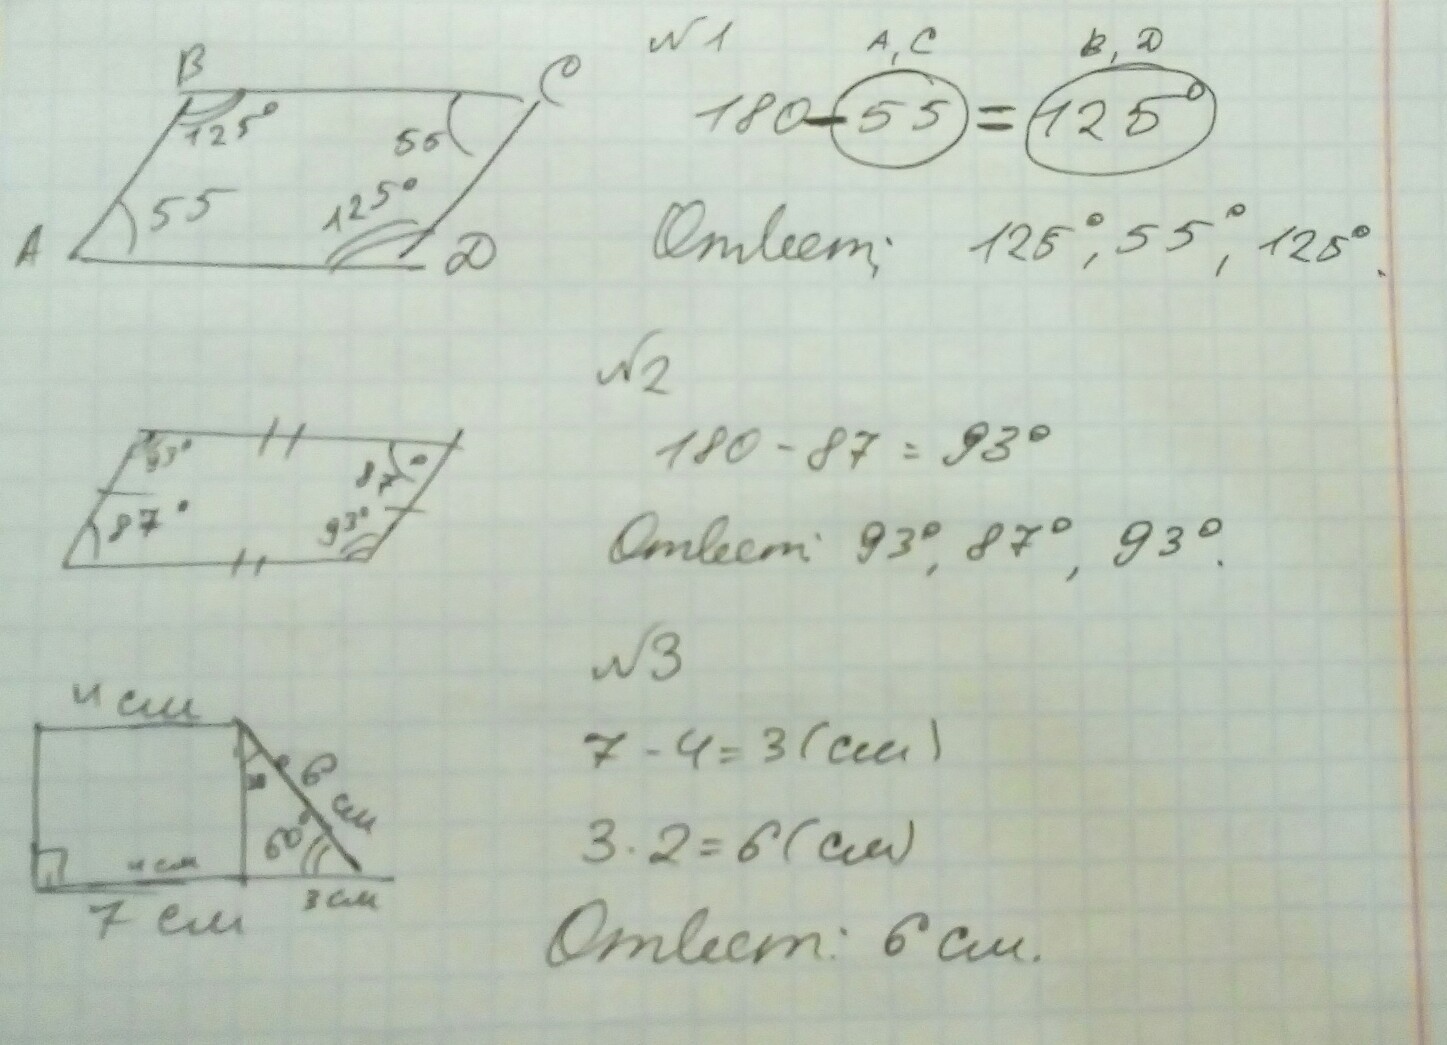 B
C
125°
55
55
125°
A
D
№1
A, C
B, D
180-55=125°
Ответ: 125°, 55°, 125°.
№2
93°
87°
87°
93°
180-87=93°
Ответ: 93°, 87°, 93°.
№3
4 см
6 см
60°
4 см
7 см
3 см
7-4=3(см)
3·2=6(см)
Ответ: 6 см.